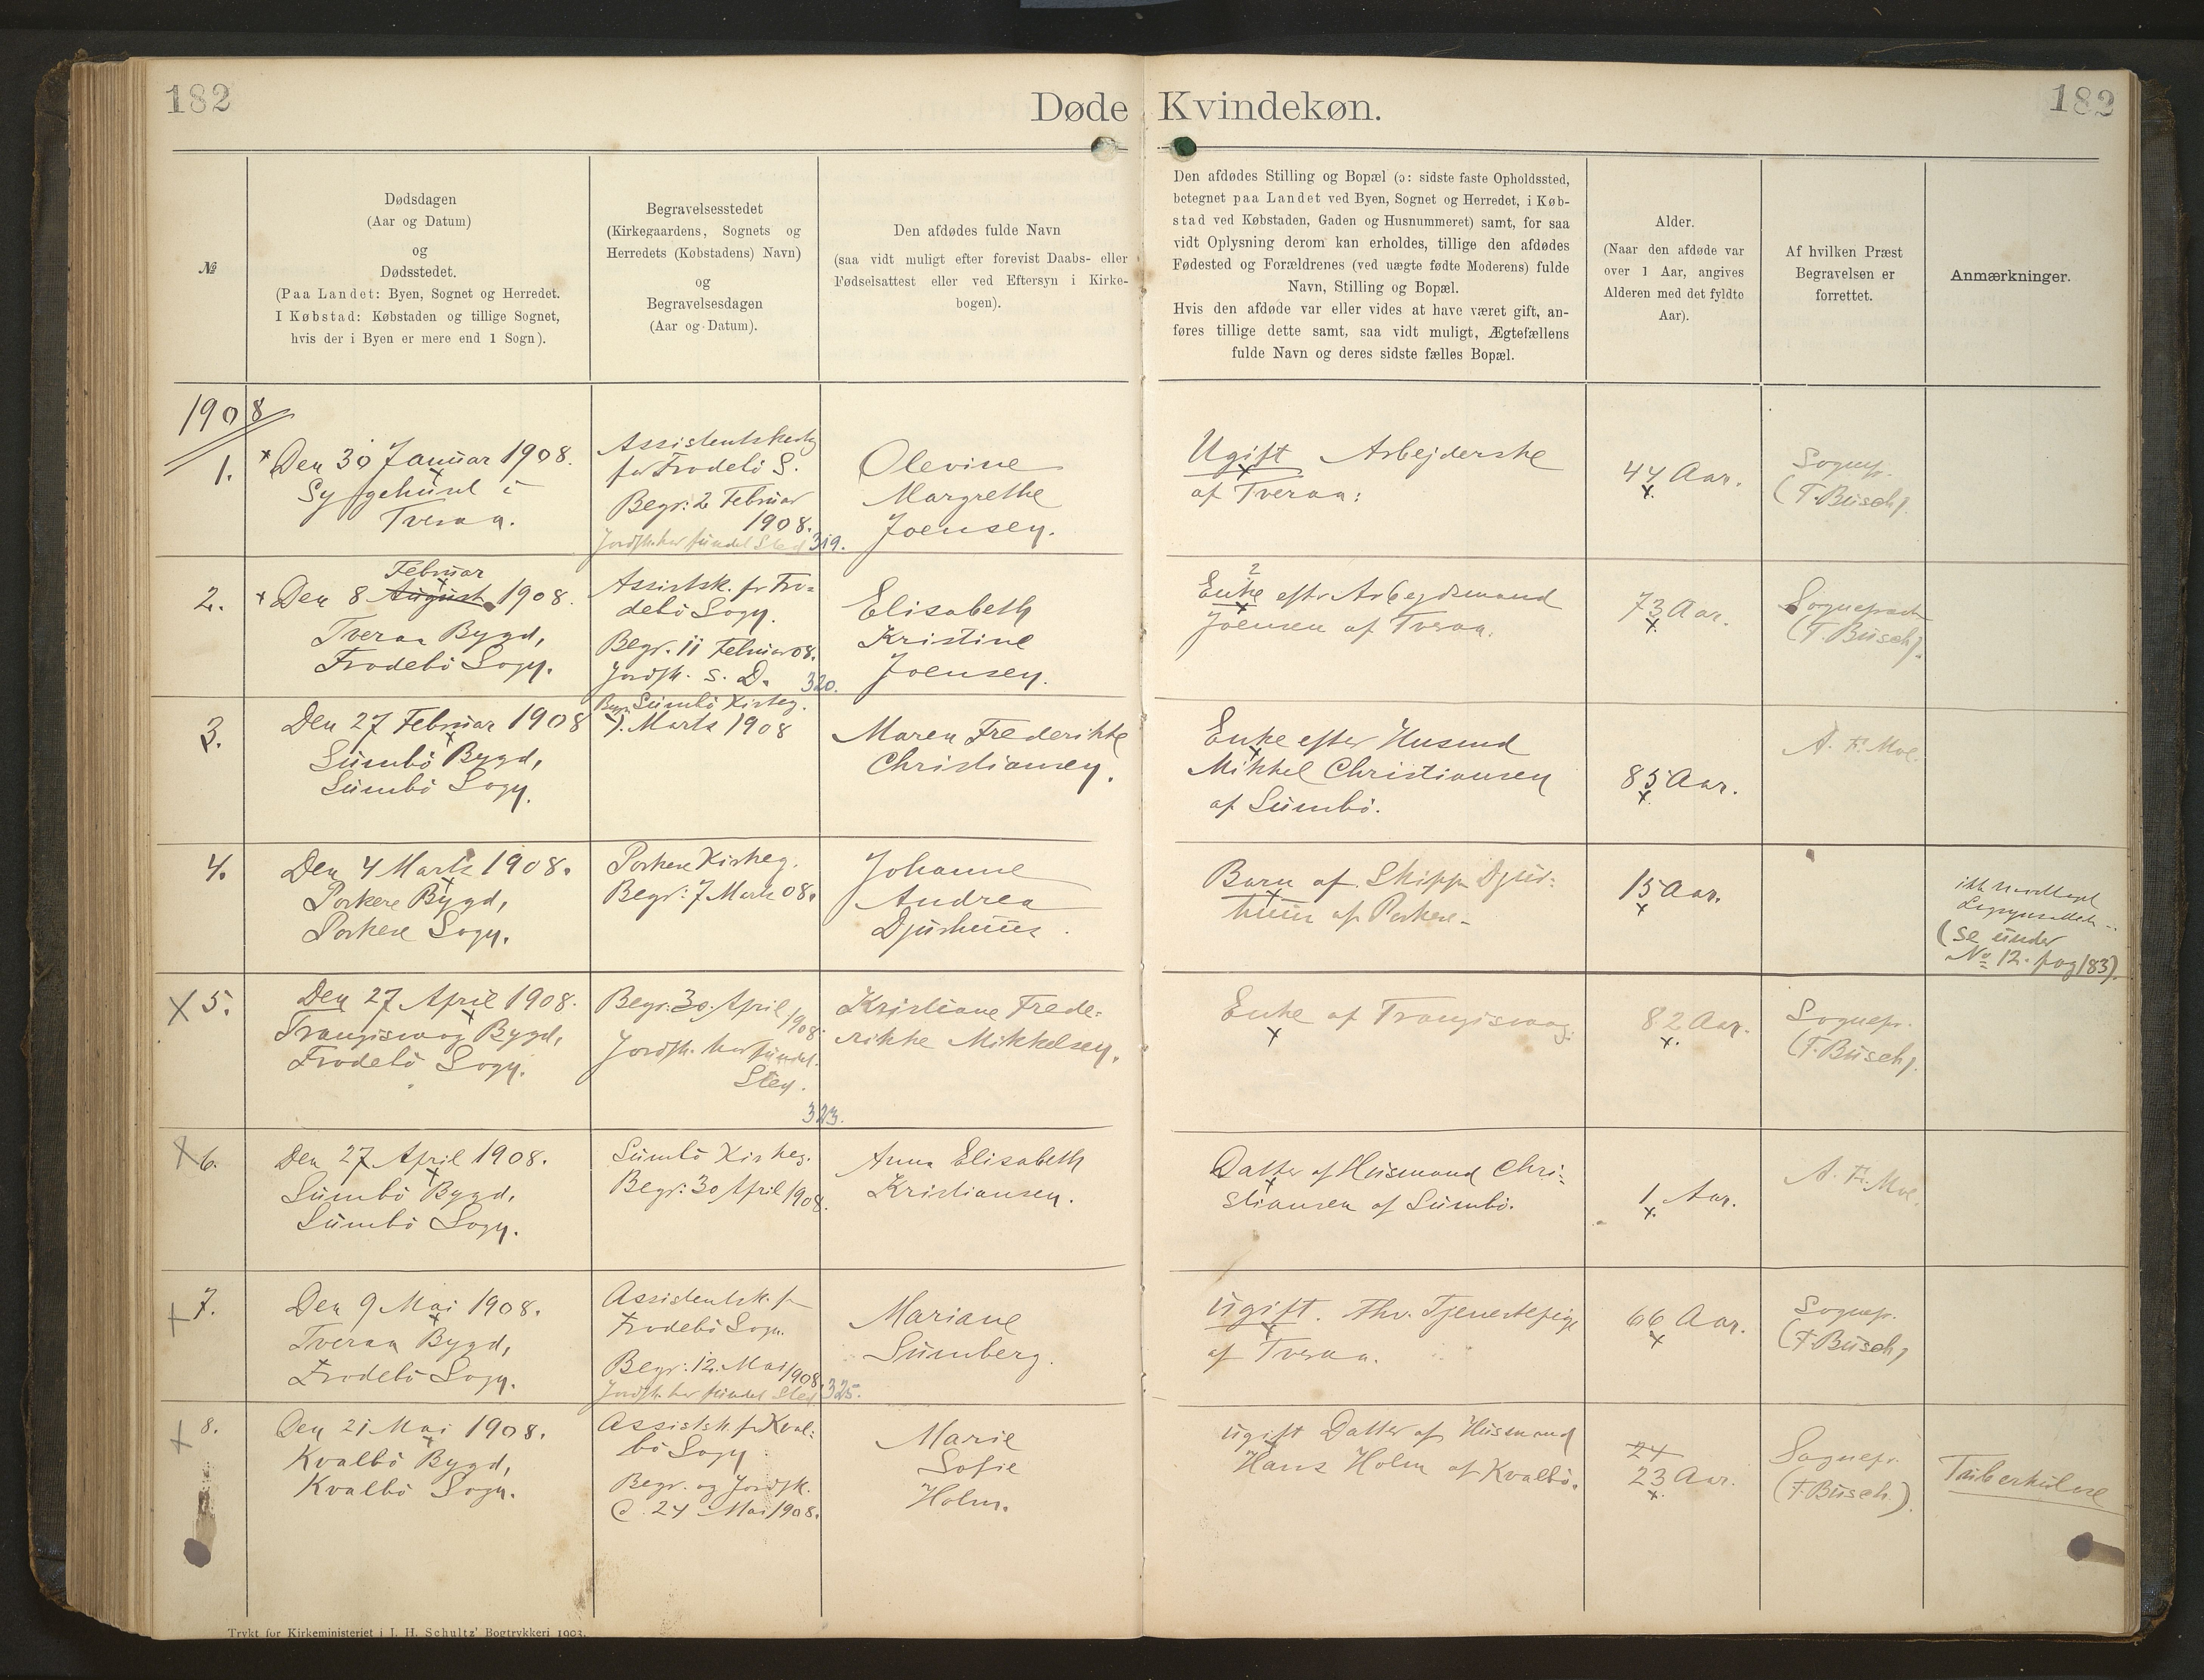 182
Døde Kvindekøn.
182
№
Dødsdagen
(Aar og Datum)
og
Dødsstedet.
(Paa Landet: Byen, Sognet og Herredet.
I Købstad: Købstaden og tillige Sognet,
hvis der i Byen er mere end 1 Sogn).
Begravelsesstedet
(Kirkegaardens, Sognets og
Herredets (Købstadens) Navn)
og
Begravelsesdagen
(Aar og Datum).
Den afdødes fulde Navn
(saa vidt muligt efter forevist Daabs- eller
Fødselsattest eller ved Eftersyn i Kirke-
bogen).
Den afdødes Stilling og Bopæl (ɔ: sidste faste Opholdssted,
betegnet paa Landet ved Byen, Sognet og Herredet, i Køb-
stad ved Købstaden, Gaden og Husnummeret) samt, for saa
vidt Oplysning derom kan erholdes, tillige den afdødes
Fødested og Forældrenes (ved uægte fødte Moderens) fulde
Navn, Stilling og Bopæl.
Hvis den afdøde var eller vides at have været gift, an-
føres tillige dette samt, saa vidt muligt, Ægtefællens
fulde Navn og deres sidste fælles Bopæl.
Alder.
(Naar den afdøde var
over 1 Aar, angives
Alderen med det fyldte
Aar).
Af hvilken Præst
Begravelsen er
forrettet.
Anmærkninger.
1908
1.
Den 30 Januar 1908.
Sygehuset i
Tveraa.
Assistentskirkeg
for Frodebö S.
Begr: 2 Februar
1908.
Jordfk. har fundet Sted 319.
Olevine
Margrethe
Joensen.
Ugift Arbejderske
af Tveraa:
44 Aar.
Sognepr.
(F. Busch).
2.
Februar
Den 8 August 1908.
Tveraa Bygd,
Frodebö Sogn.
Assistsk. for Fro-
debö Sogn.
Begr. 11 Februar 08.
Jordfk. S. D. 320.
Elisabeth
Kristine
Joensen.
Enke eftr Arbejdsmand
Joensen af Tveraa.
73 Aar.
Sognepræst
(F. Busch).
3.
Den 27 Februar 1908
Sumbö Bygd,
Sumbö Sogn.
Begr. Sumbö Kirkeg.
1. Marts 1908
Maren Frederikke
Christiansen.
Enke efter Husmd
Mikkel Christiansen
af Sumbö.
85 Aar.
A. F. Moe.
4.
Den 4 Marts 1908.
Porkere Bygd,
Porkere Sogn.
Porkere Kirkeg.
Begr: 7 Marts 08.
Johanne
Andrea
Djurhuus.
Barn af Skipper Djur-
huus af Porkere-
15 Aar.
(se under
No 12. pag 183).
X 5.
Den 27 April 1908.
Trangisvaag Bygd,
Frodebö Sogn.
Begr: 30. April
1908.
Jordfk. har fundet
Sted.
323.
Kristiane Frede-
rikke Mikkelsen.
Enke af Trangisvaag.
82 Aar.
Sognepr.
(F. Busch).
X 6.
Den 27 April 1908.
Sumbö Bygd,
Sumbö Sogn.
Sumbö Kirkeg.
Begr: 30 April 1908.
Anna Elisabeth
Kristiansen.
Datter af Husmand Chri-
stiansen af Sumbö.
1 Aar.
A. F. Moe.
+ 7.
Den 9 Mai 1908.
Tveraa Bygd,
Frodebö Sogn.
Assistentsk. f
Frodebö Sogn.
Begr: 12. Mai 1908.
Jordfk. har fundet Sted. 325.
Mariane
Sumberg.
Ugift. Fhv. Tjenestepige
af Tveraa.
66 Aar.
Sognepr.
(F. Busch)
+ 8.
Den 21 Mai 1908.
Kvalbö Bygd,
Kvalbö Sogn.
Assistsk. f. Kval-
bö Sogn
Begr. og Jordfk.
d. 24 Mai 1908.
Marie
Sofie
Holm.
ugift Datter af Husmand
Hans Holm af Kvalbö.
24
23 Aar.
Sognepr.
(F. Busch.)
Tuberkulose
Trykt for Kirkeministeriet i J. H. Schultz' Bogtrykkeri 1903.